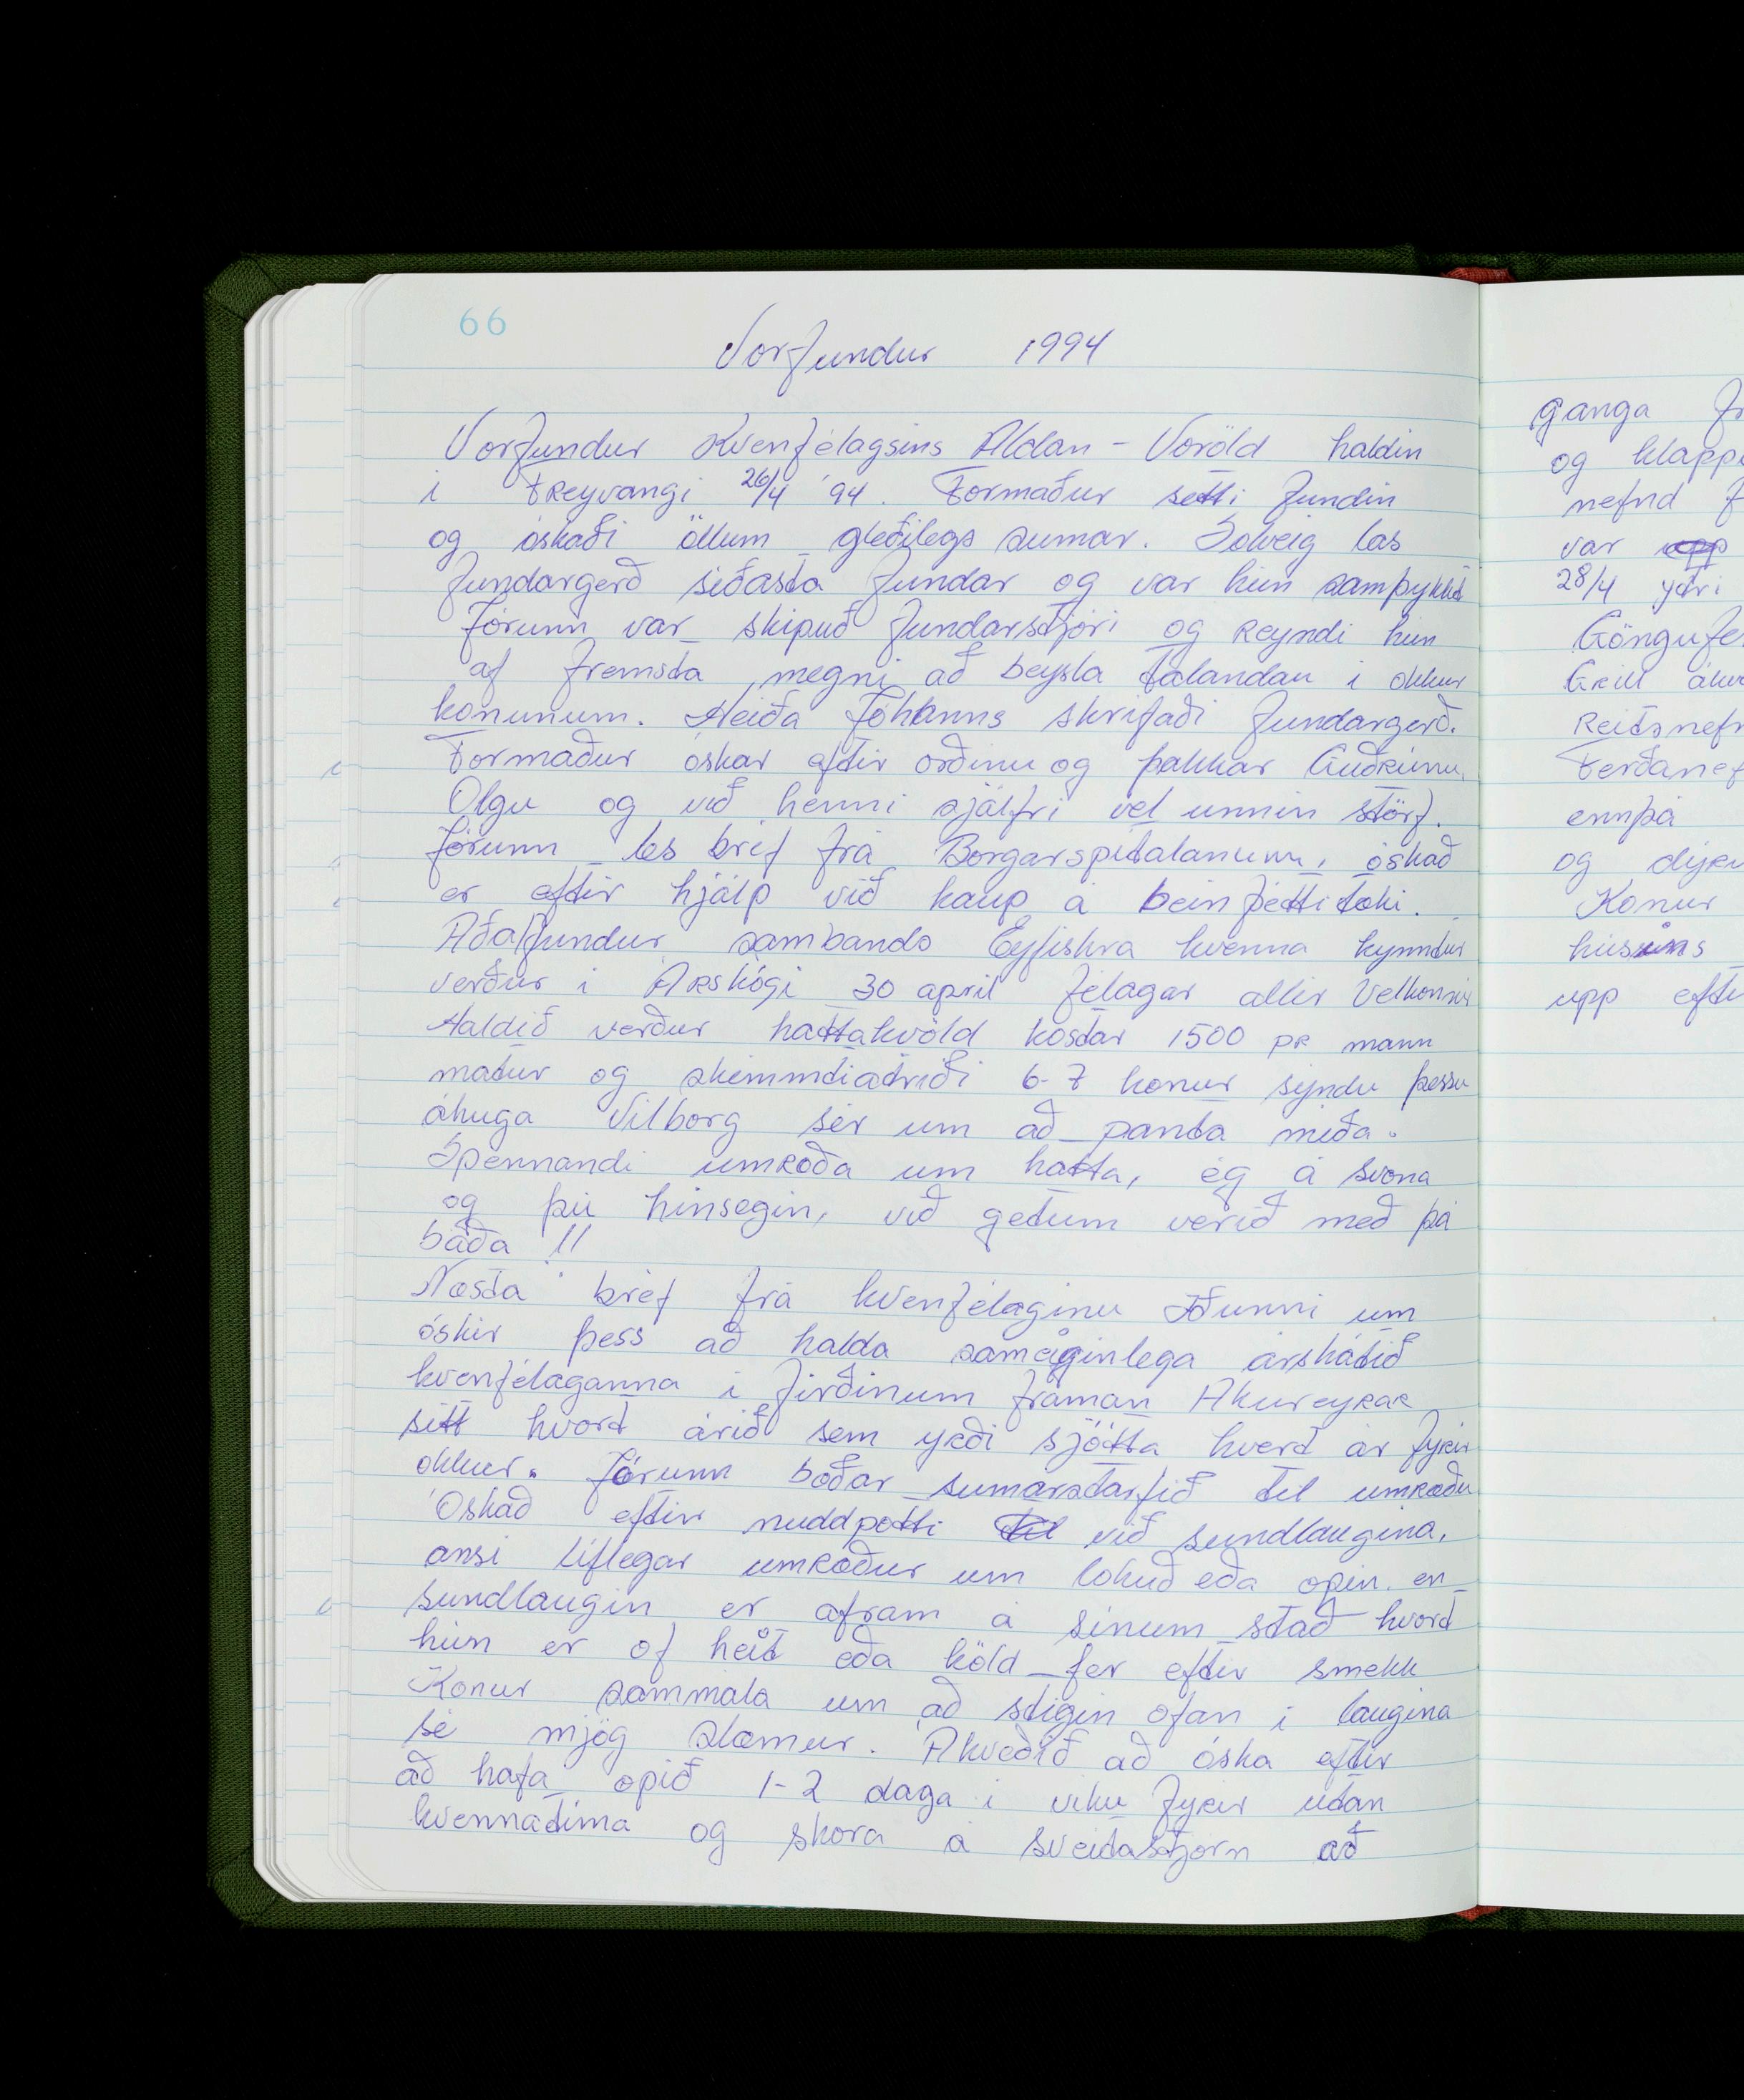 66
Vorfundur 1994
Vorfundur Kvenfélagsins Aldan - Voröld haldin
í Freyvangi 26/4 '94. Formaður setti fundin
og óskaði öllum gleðilegs sumar. Solveig las
fundargerð síðasta fundar og var hún samþykkt
Jórunn var skipuð fundarstjóri og reyndi hún
af fremsta megni að beysla talandan í okkur
konunum. Heiða Jóhanns skrifaði fundargerð.
Formaður óskar eftir orðinu og þakkar Guðrúnu,
Olgu og við henni sjálfri vel unnin störf.
Jórunn les bréf frá Borgarspítalanum, óskað
er eftir hjálp við kaup á beinþéttitæki.
Aðalfundur sambands Eyfiskra kvenna kynndur
verður í Árskógi 30 april félagar allir Velkomnir
Haldið verður hattakvöld kostar 1500 pr mann
matur og skemmdiatriði 6-7 konur sýndu þessu
áhuga Vilborg sér um að panta miða.
Spennandi umræða um hatta, ég á svona
og þú hinsegin, við getum verið með þá
báða !!
Næsta bréf frá kvenfélaginu Iðunni um
óskir þess að halda sameiginlega árshátíð
kvenfélaganna í firðinum framan Akureyrar
sitt hvort árið sem yrði sjötta hvert ár fyrir
okkur. Jórunn boðar sumarstarfið til umræðu
Óskað eftir nuddpotti við sundlaugina,
ansi líflegar umræður um lokuð eða opin. en
sundlaugin er afram á sínum stað hvort
hún er of heit eða köld fer eftir smekk
Konur sammála um að stigin ofan í laugina
sé mjög slæmur. Ákveðið að óska eftir
að hafa opið 1-2 daga í viku fyrir utan
kvennatíma og skora á sveitastjórn að
ganga
og
nefnd
var
28/4 ytri
Grill
ennþá
og
Konur
húsins
upp